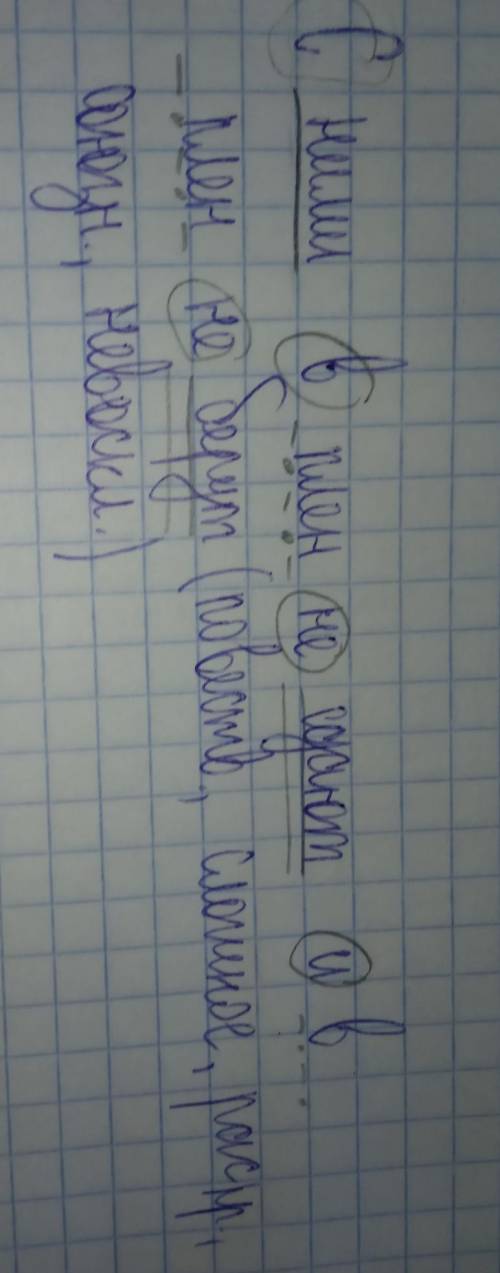 С ними в плен не сдают и в
плен не берут (повеств, сложное, распр.,
союзн., невоскл.)